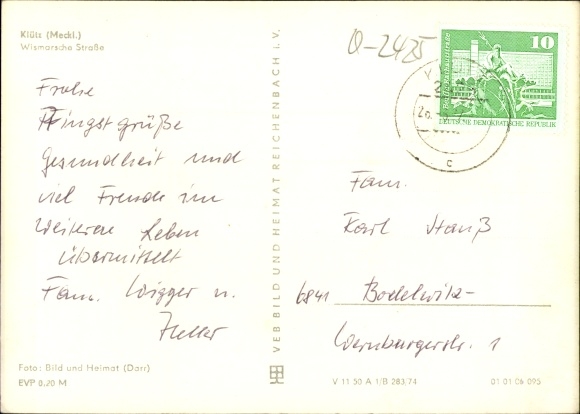 Klütz (Meckl.)
Wismarsche Straße
Frohe
Pfingstgrüße
Gesundheit und
viel Freude im
Weiteren Leben
übermittelt
Fam. Wigger u.
Foto: Bild und Heimat (Darr)
EVP 0,20 M
VEB BILD UND HEIMAT REICHENBACH I. V.
Q-2425
10
DEUTSCHE DEMOKRATISCHE REPUBLIK
c
Fam.
Karl Hanß
6841 Bodelwitz
Wernburgerstr. 1
V 11 50 A 1/B 283/74
01 01 06 095